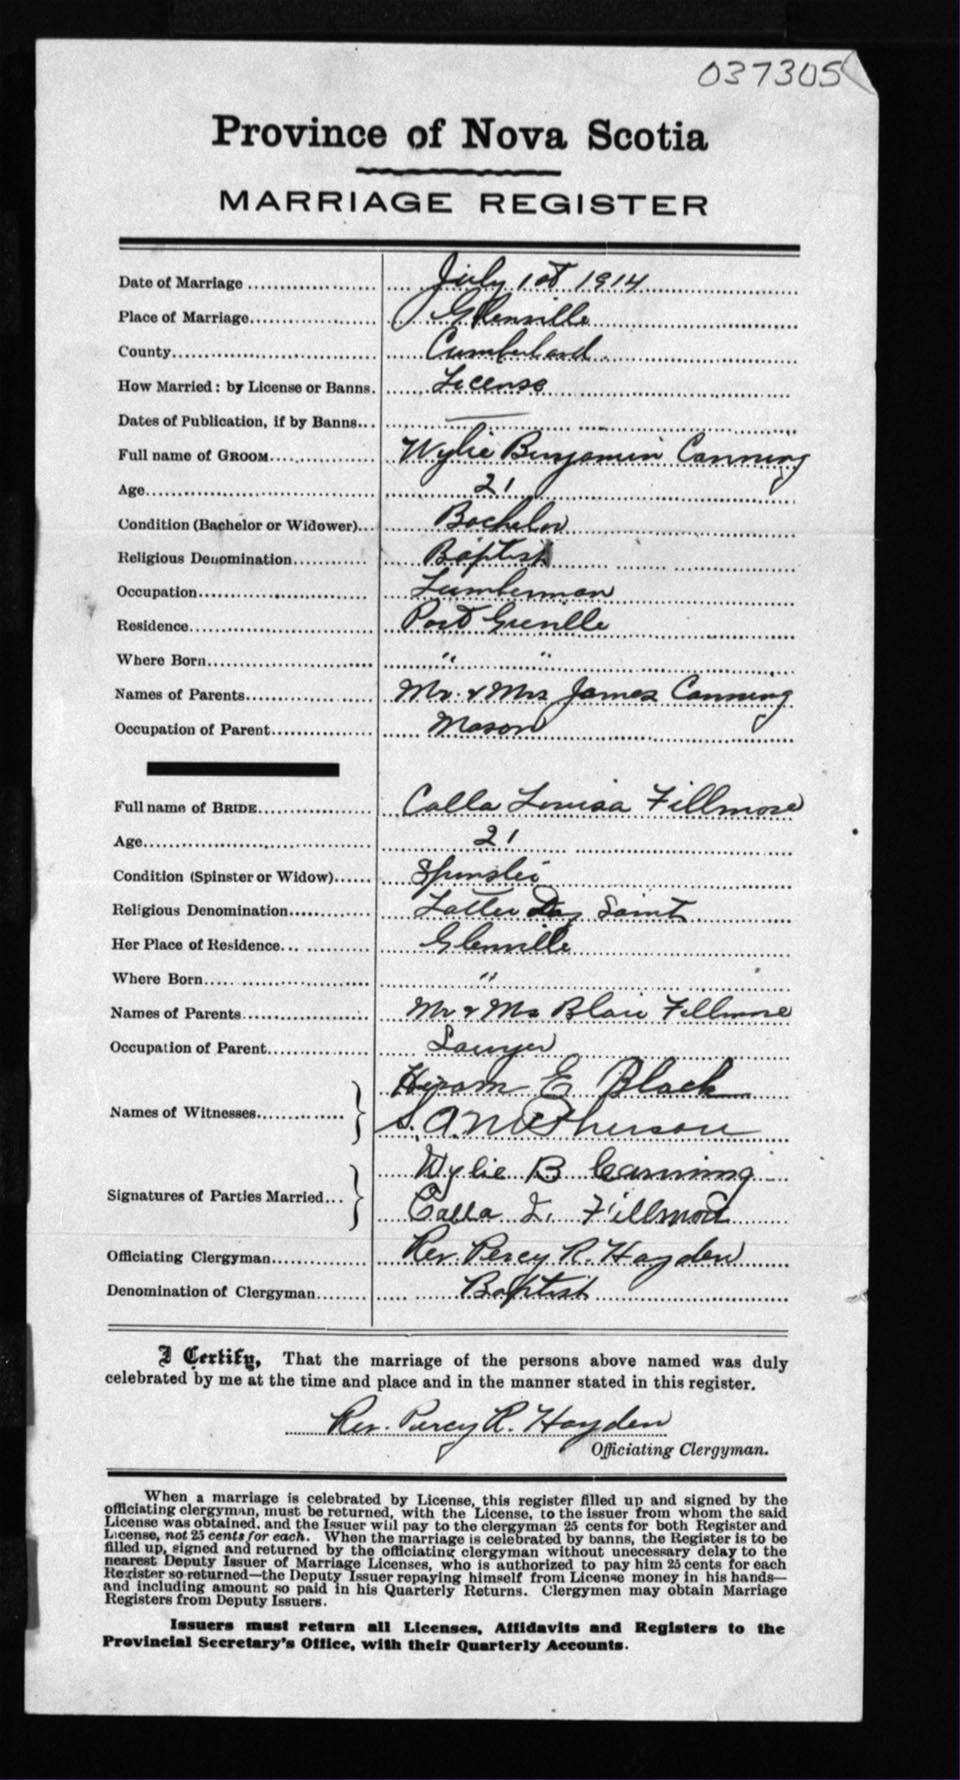 037305
Province of Nova Scotia
MARRIAGE REGISTER
Date of Marriage ........ July 1st 1914
Place of Marriage........ Glenville
County........ Cumberland
How Married: by License or Banns. License
Dates of Publication, if by Banns... —
Full name of GROOM........ Wylie Benjamin Canning
Age........ 21
Condition (Bachelor or Widower)... Bachelor
Religious Denomination........ Baptist
Occupation........ Lumberman
Residence........ Port Greville
Where Born........ " "
Names of Parents........ Mr. & Mrs James Canning
Occupation of Parent........ Mason
Full name of BRIDE........ Calla Louisa Fillmore
Age........ 21
Condition (Spinster or Widow)...... Spinster
Religious Denomination........ Latter Day Saint
Her Place of Residence... ........ Glenville
Where Born........ "
Names of Parents........ Mr & Mrs Blair Fillmore
Occupation of Parent........ Lawyer
Hiram E Black
Names of Witnesses........
S. A. McPherson
Wylie B Canning
Signatures of Parties Married...
Calla L. Fillmore
Officiating Clergyman........ Rev. Percy R. Hayden
Denomination of Clergyman........ Baptist
I Certify, That the marriage of the persons above named was duly
celebrated by me at the time and place and in the manner stated in this register.
Rev. Percy R. Hayden
Officiating Clergyman.
When a marriage is celebrated by License, this register filled up and signed by the
officiating clergyman, must be returned, with the License, to the issuer from whom the said
License was obtained, and the Issuer will pay to the clergyman 25 cents for both Register and
License, not 25 cents for each. When the marriage is celebrated by banns, the Register is to be
filled up, signed and returned by the officiating clergyman without unecessary delay to the
nearest Deputy Issuer of Marriage Licenses, who is authorized to pay him 25 cents for each
Register so returned—the Deputy Issuer repaying himself from License money in his hands—
and including amount so paid in his Quarterly Returns. Clergymen may obtain Marriage
Registers from Deputy Issuers.
Issuers must return all Licenses, Affidavits and Registers to the
Provincial Secretary's Office, with their Quarterly Accounts.